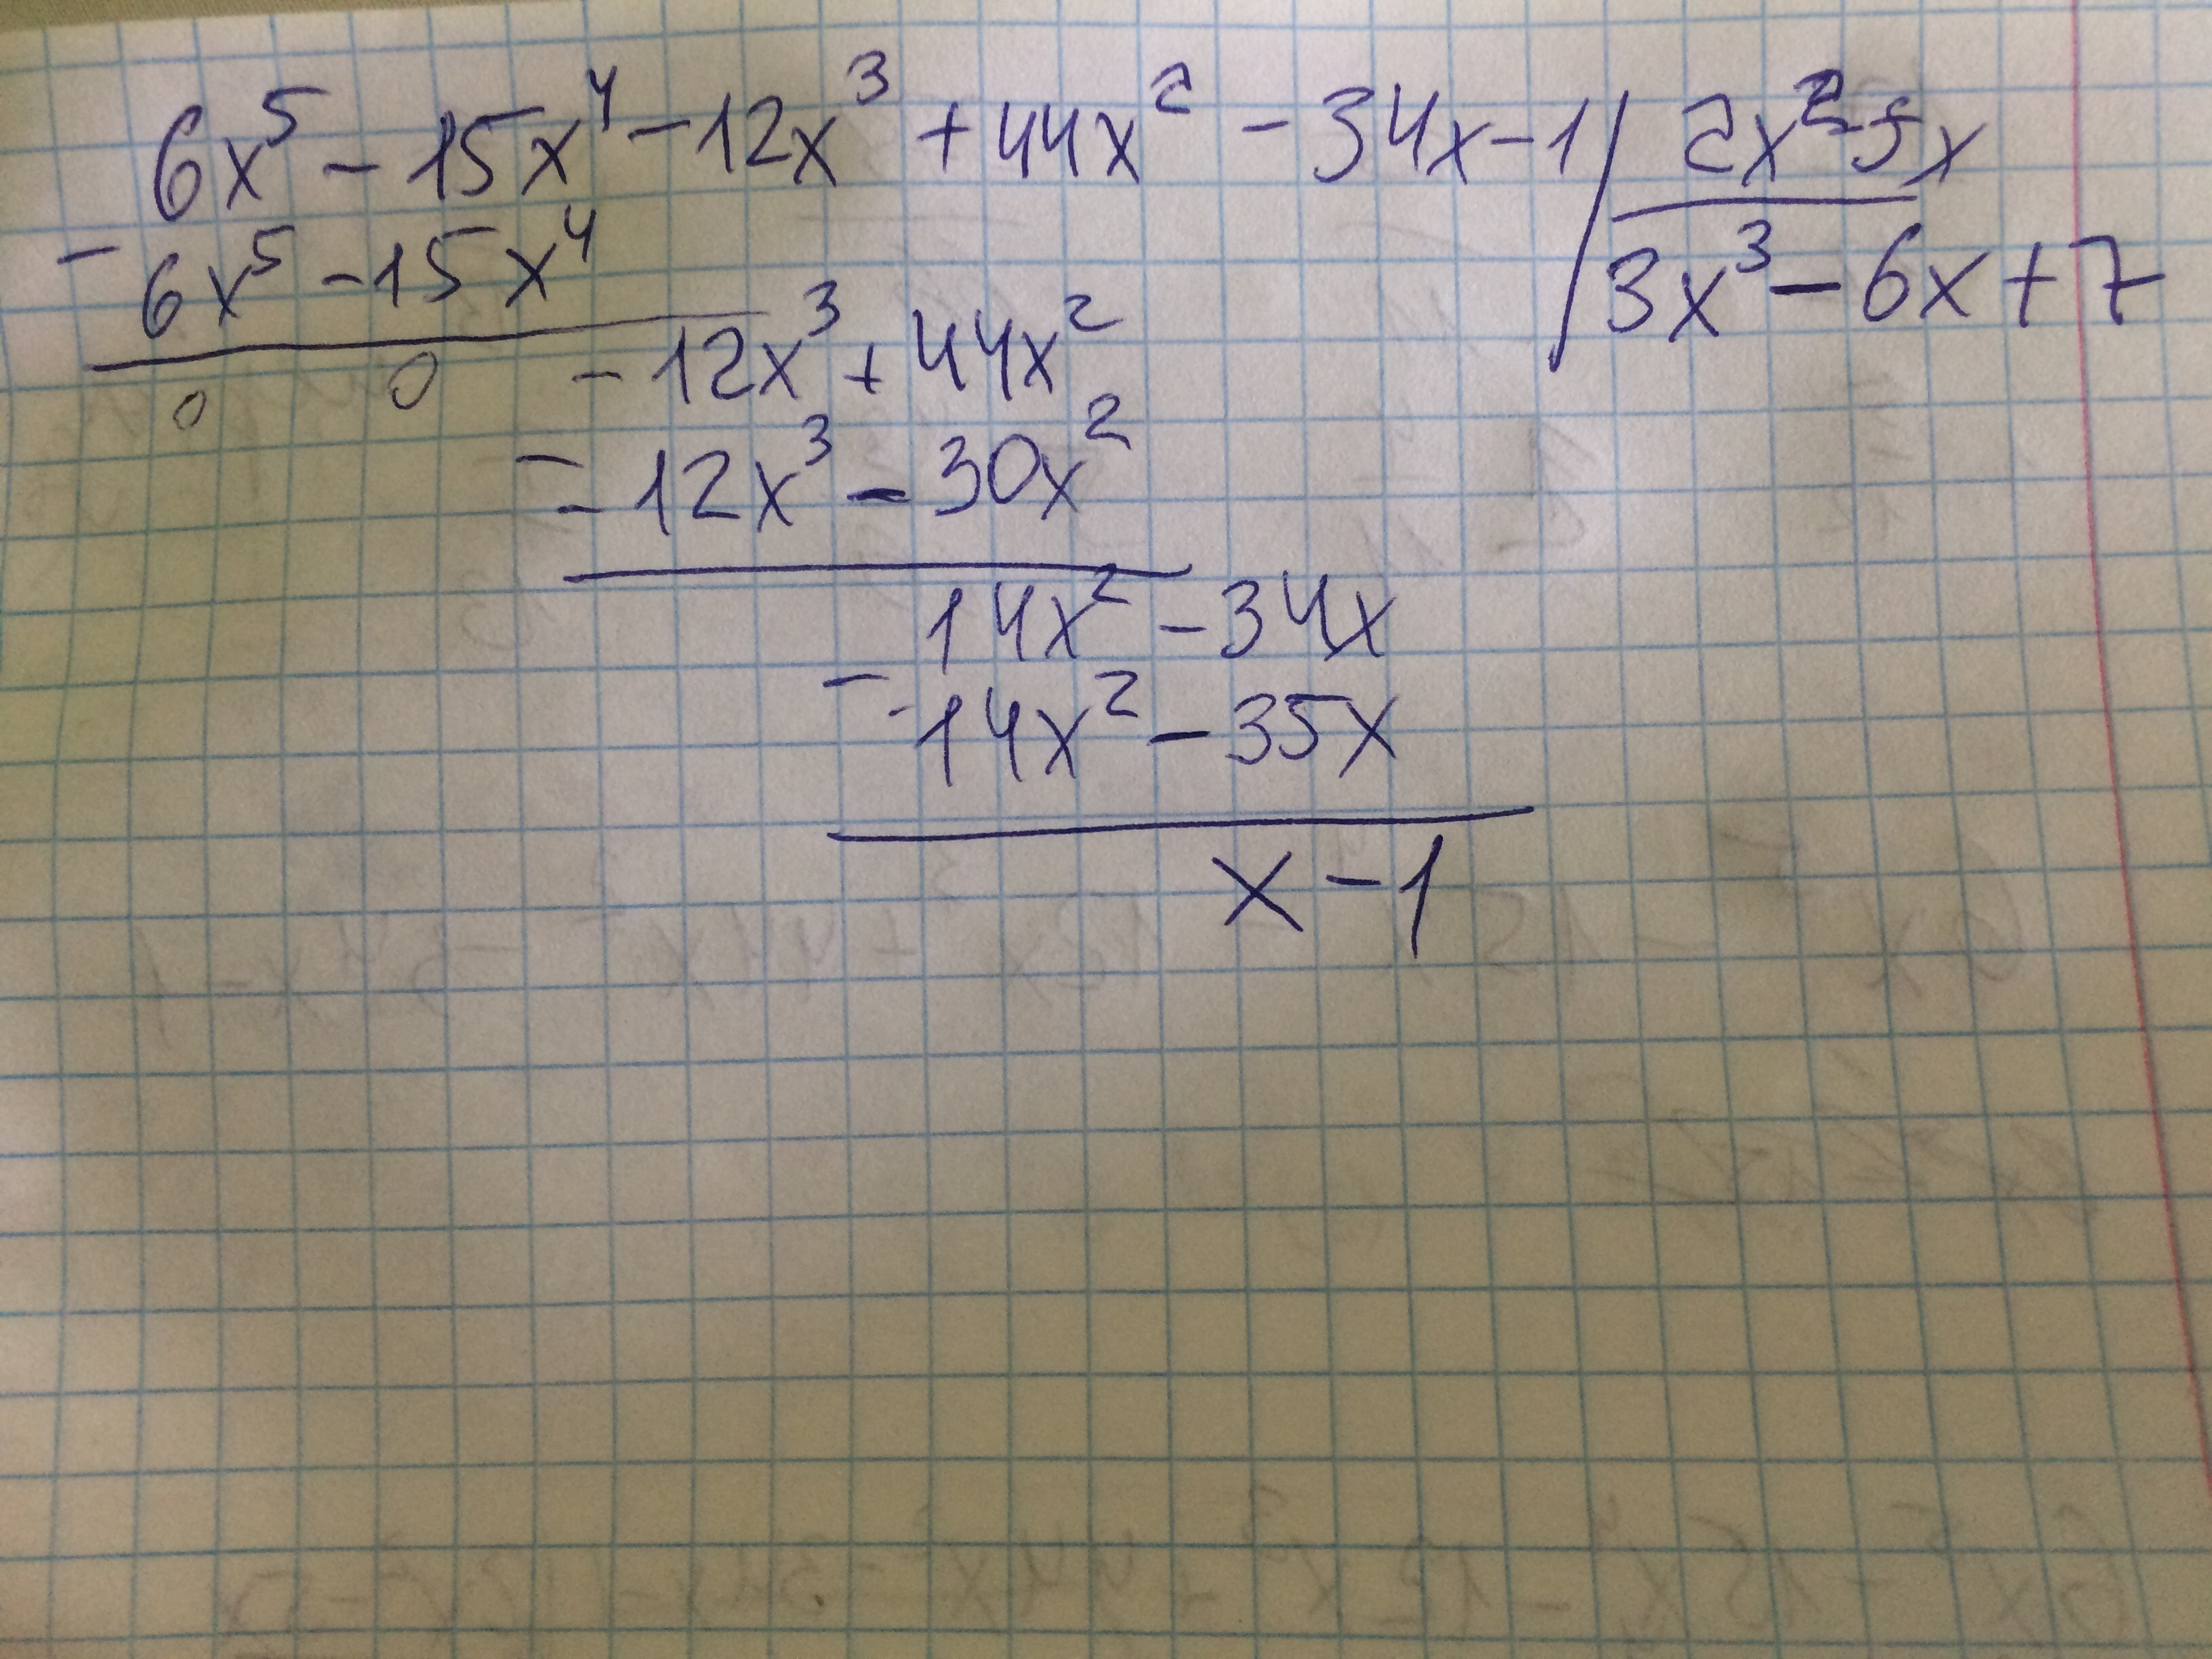 6x⁵ - 15x⁴ - 12x³ + 44x² - 34x - 1 / 2x² - 5x
- 6x⁵ - 15x⁴
3x³ - 6x + 7
0 0 - 12x³ + 44x²
- - 12x³ - 30x²
14x² - 34x
- 14x² - 35x
x - 1